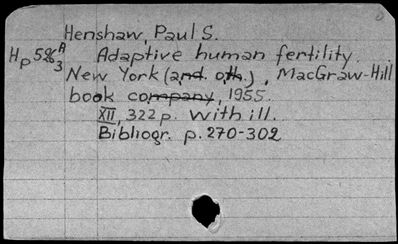 Henshaw, Paul S.
Adaptive human fertility.
New York (and oth.), MacGraw-Hill
book company, 1955.
XII, 322 p. With ill.
Bibliogr. p. 270-302